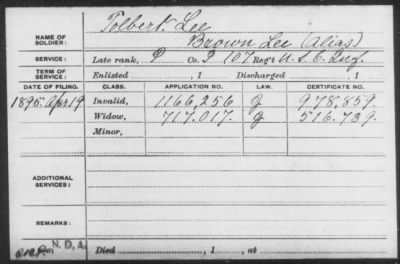 Tolbert Lee
NAME OF SOLDIER: Brown Lee (Alias)
SERVICE: Late rank, P Co. I 107 Reg't U.S.C. Inf.
TERM OF SERVICE: Enlisted , 1 Discharged , 1
DATE OF FILING. CLASS. APPLICATION NO. LAW. CERTIFICATE NO.
1895 Apr 19 Invalid, 1166,256 J 978,859.
Widow, 717,017. J 516,739.
Minor,
ADDITIONAL SERVICES:
REMARKS:
N.D.A.
Died , 1 , at